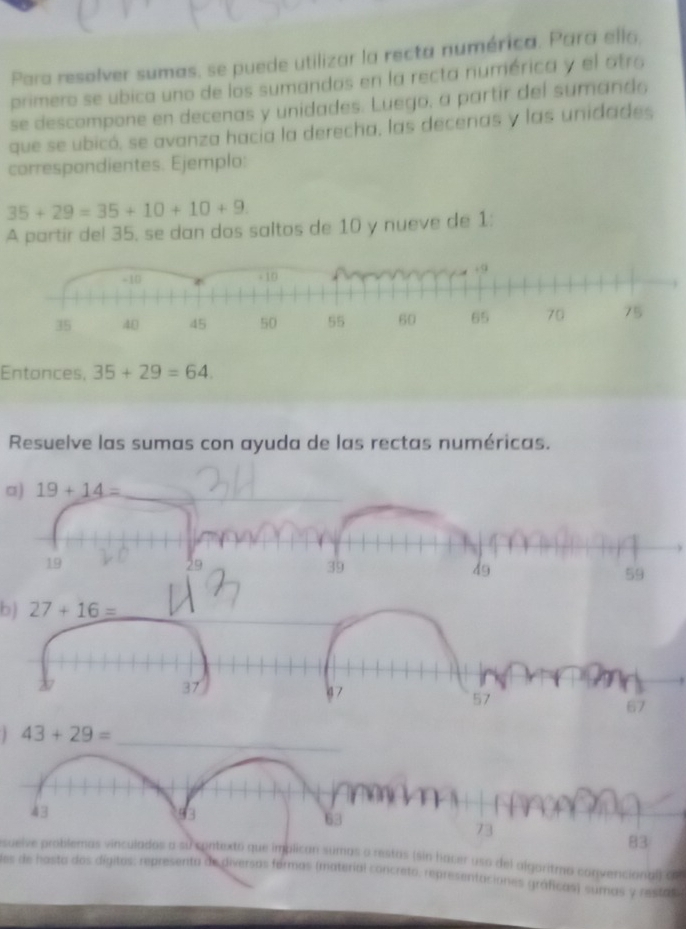 Para resolver sumas, se puede utilizar la recta numérica. Para ello,
primero se ubica uno de los sumandos en la recta numérica y el otro
se descompone en decenas y unidades. Luego, a partir del sumando
que se ubicó, se avanza hacia la derecha, las decenas y las unidades
correspondientes. Ejemplo:
35 + 29 = 35 + 10 + 10 + 9.
A partir del 35, se dan dos saltos de 10 y nueve de 1:
+10 +10 +9
35 40 45 50 55 60 65 70 75
Entonces, 35 + 29 = 64.
Resuelve las sumas con ayuda de las rectas numéricas.
a) 19 + 14 = 34
19 29 39 49 59
b) 27 + 16 = 43
37 47 57 67
) 43 + 29 =
43 53 63 73 83
suelve problemas vinculados a su contexto que implican sumas o restas (sin hacer uso del algoritmo convencional)
de hasta dos dígitos; representa de diversas formas (material concreto, representaciones gráficas) sumas y restas